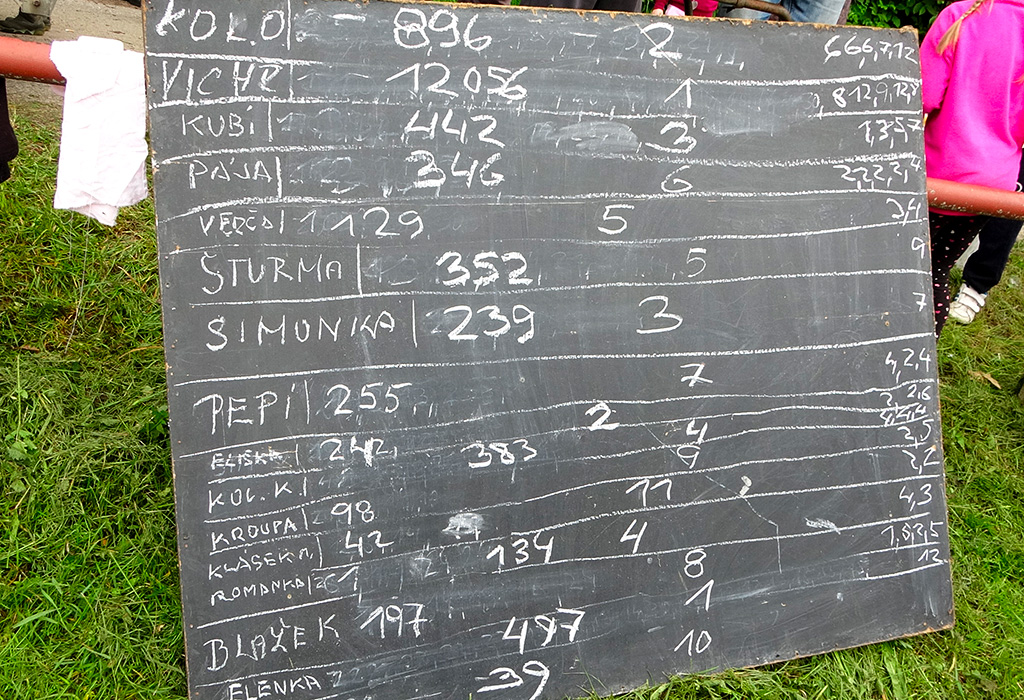 KOLO - 896 - 2 6,6,6,7,12
VICHR 12056 1 8,12,9,12,8
KUBI 442 3 1,3,5,7
PÁJA 346 6 2,2,2,2,4
VERČA 129 5 2,4
ŠTURMA 352 5 9
SIMONKA 239 3 7
PEPÍ 255 7 4,2,4
ELIŠKA 242 383 2 4
KOL. K. 9
KROUPA 98 11 2,2
KLÁSEK M. 42 134 4 4,3
ROMANKA 8
BLAŽEK 197 497 1 13
ELENKA 39 10